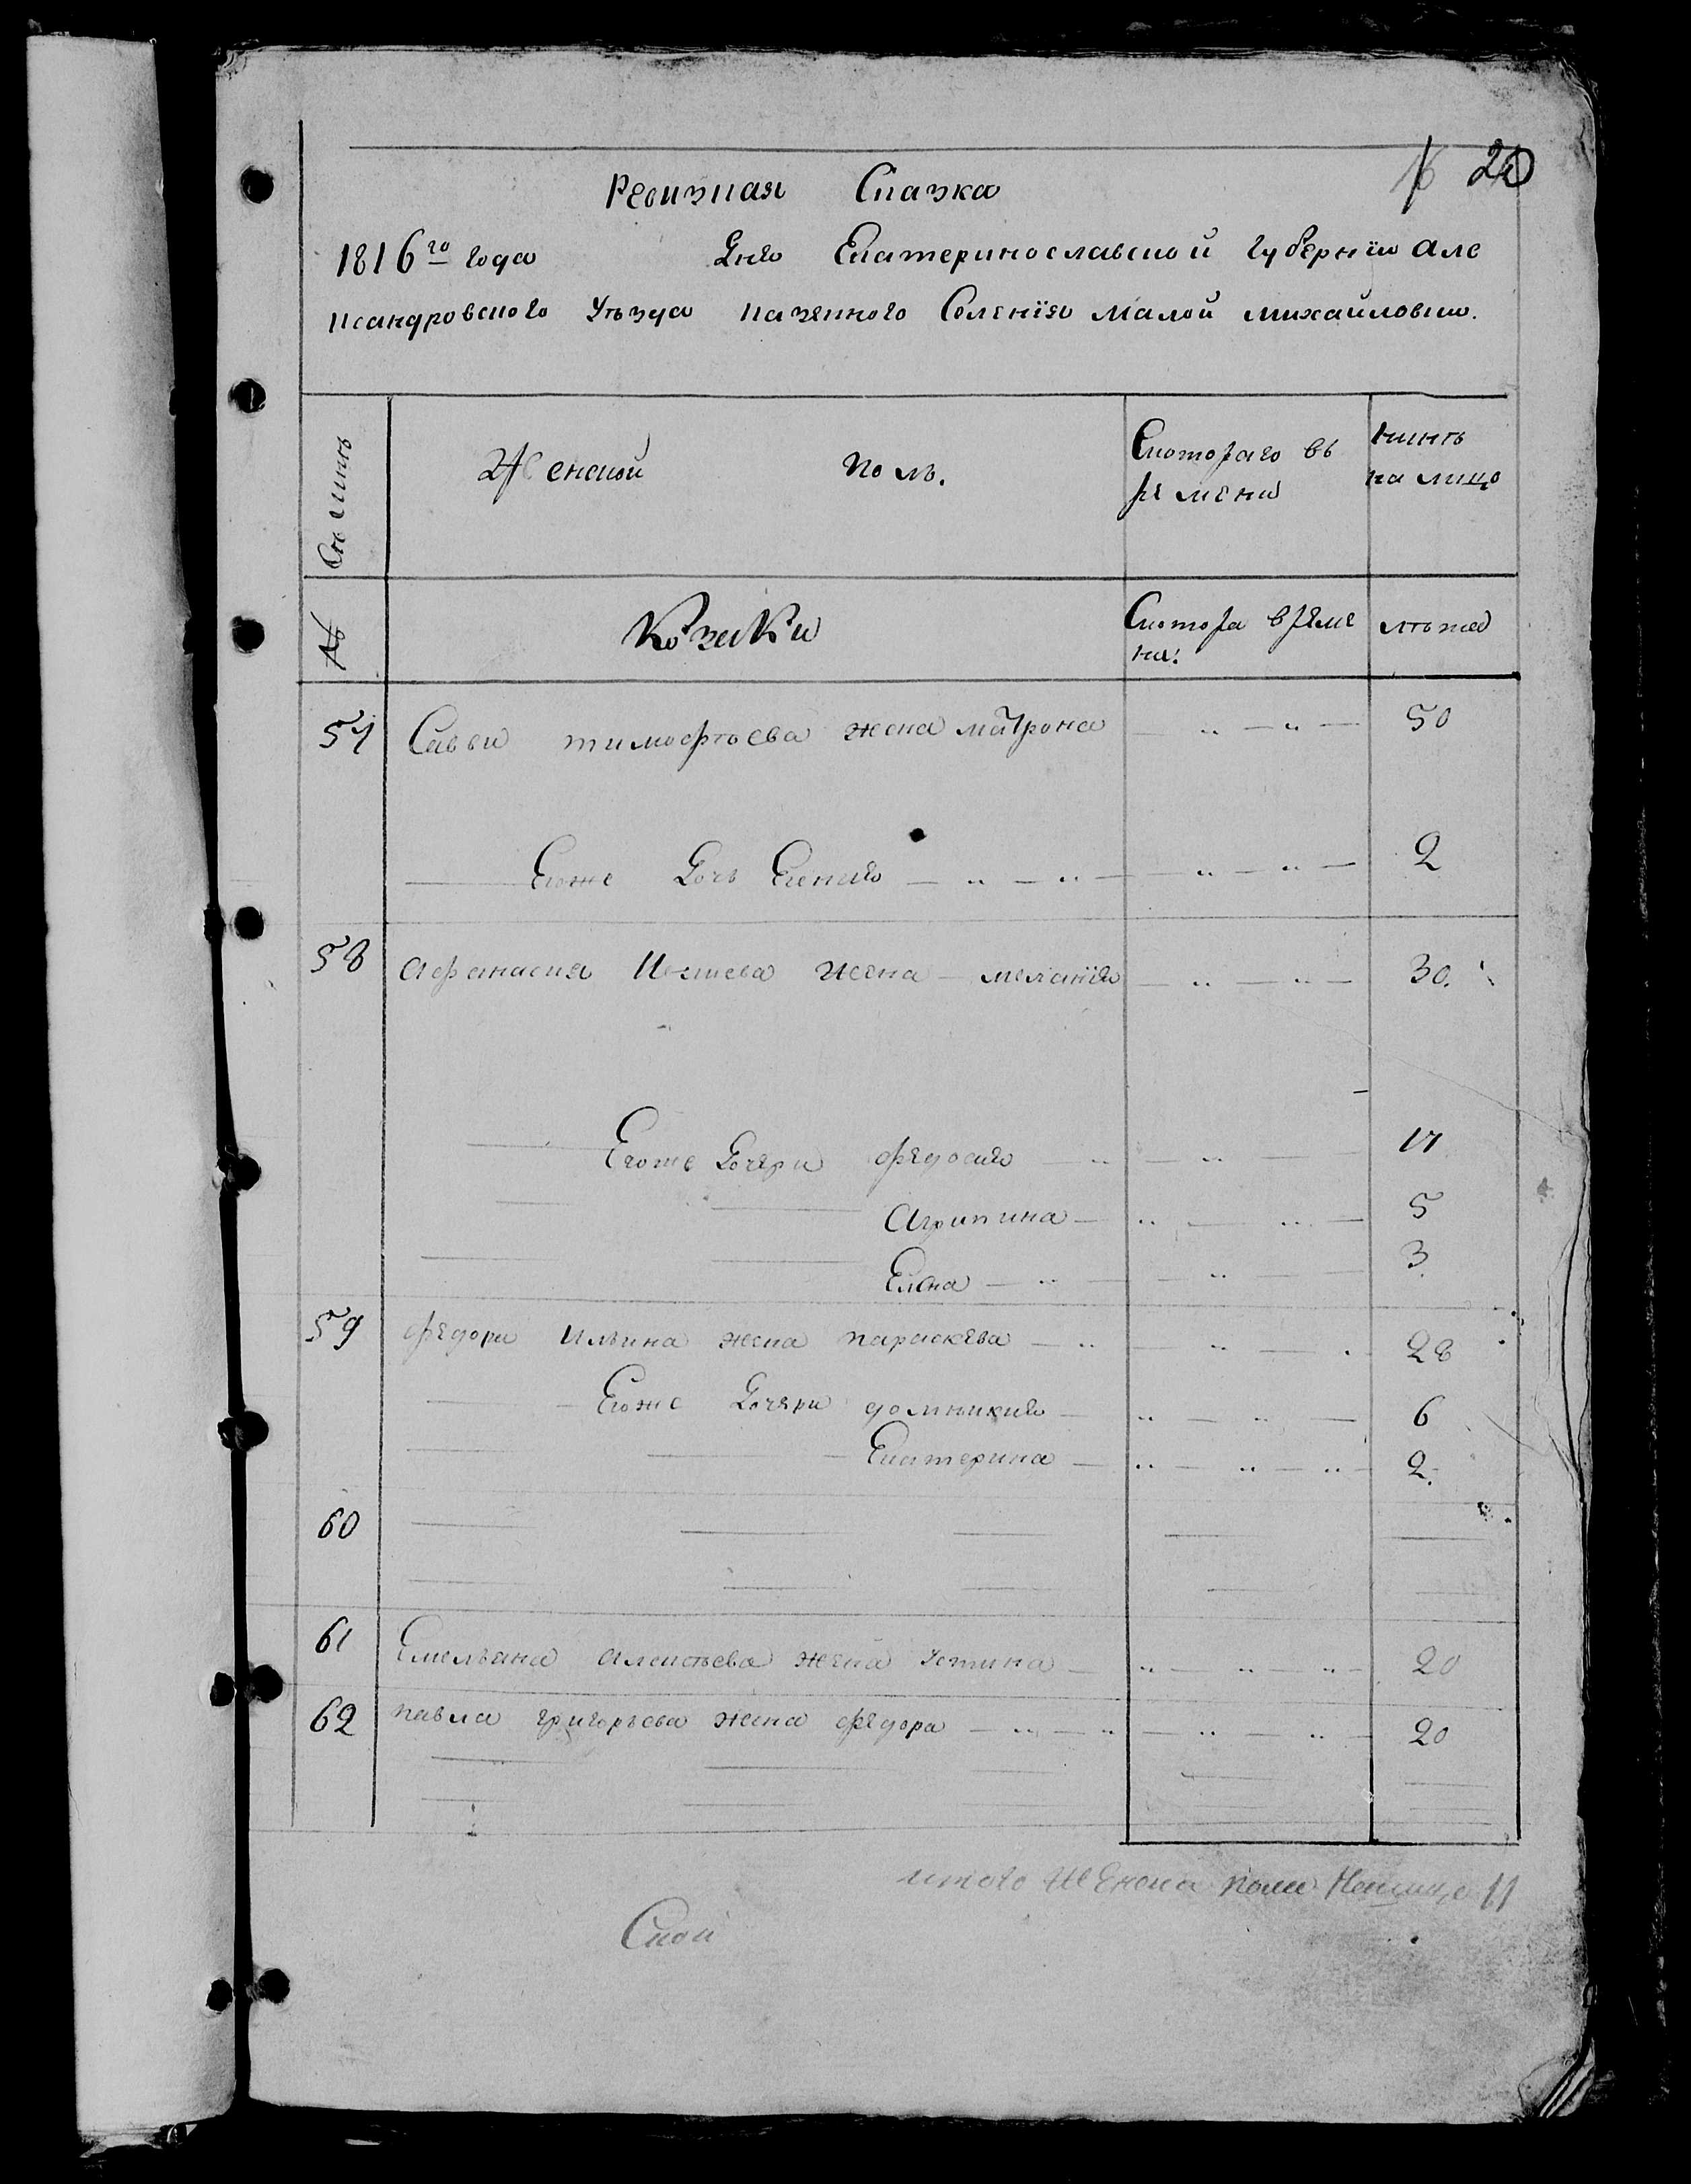 20
Ревизская Сказка
1816го года Дня Екатеринославской губернїи Але
ксандровского Уѣзда казенного Селенїя малой михайловки.
Семьи
Женской полъ.
Скотораго вь
ремени
нынѣ
на лицо
№
Козаки
Скотора време
ни:
лѣта
57 Савви тимофѣева жена матрона 50
Егоже Дочь 2
58 Афанасия жена меланїя 30.
Егоже Дочери федосия
Агрипина 5
Елена 3
59 федора Ильина жена параскева 28
Егоже Дочери домникия 6
Екатерина 2
60
61 Емельяна алексѣева жена Устина 20
62 павла григорьева жена федора 20
итого женска пола 11